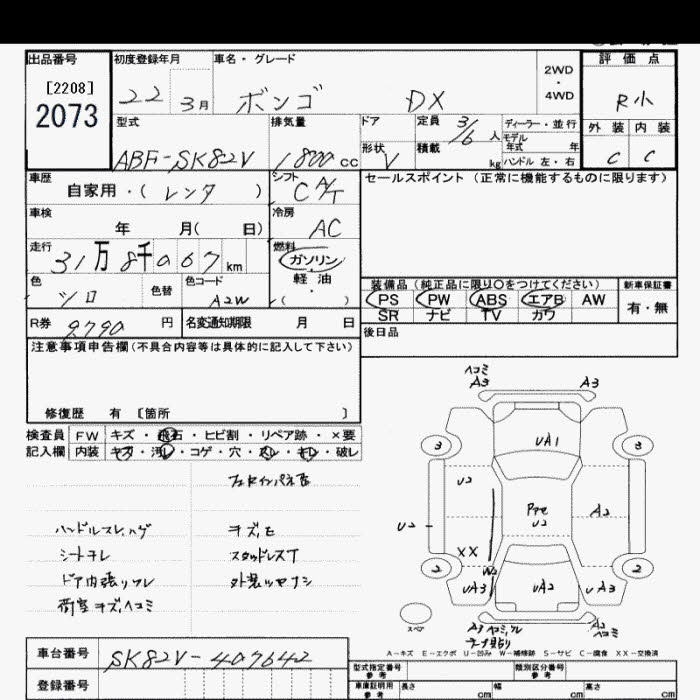 出品番号
[2208]
2073
初度登録年月
22 3月
車名・グレード
ボンゴ DX
2WD
・
4WD
評価点
R小
外装 内装
C C
型式
ABF-SK82V
排気量
1800cc
ドア
形状
V
定員 3/6人
積載 kg
ディーラー・並行
モデル
年式 年
ハンドル 左・右
車歴
自家用・(レンタ)
シフト
C A/T
セールスポイント(正常に機能するものに限ります)
車検
年 月( 日)
冷房
AC
走行
31万8千067km
燃料
ガソリン
・
軽油
・
( )
色
シロ
色替
色コード
A2W
装備品(純正品に限り○をつけてください)
PS PW ABS エアB AW
SR ナビ TV カワ
新車保証書
有・無
R券 9790円
名変通知期限 月 日
後日品
注意事項申告欄(不具合内容等は具体的に記入して下さい)
修復歴 有 [箇所 ]
検査員 FW キズ・飛石・ヒビ割・リペア跡・×要
記入欄 内装 キズ・汚レ・コゲ・穴・スレ・キレ・破レ
ハンドルスレ,ハゲ
シートキレ
キズ,モ
スタッドレスT
荷室キズ,ヘコミ
ヘコミ
A3
A3
UA1
3
3
U2
Pre
U2
A2
U2
XX
W2
2
2
UA3
UA2
UA3
スペア
A3
A2
ヘコミ
A-キズ E-エクボ U-凹み W-補修跡 S-サビ C-腐食 XX-交換済
車台番号
SK82V-407642
登録番号
型式指定番号
参考
類別区分番号
参考
車庫証明用
参考
長さ cm
幅 cm
高さ cm